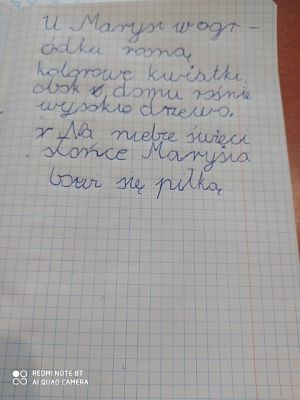 U Marysi w ogr-
ódku rosną
kolorowe kwiatki.
obok domu rośnie
wysokie drzewo.
Na niebie świeci
słońce. Marysia
bawi się piłką
REDMI NOTE 8T
AI QUAD CAMERA